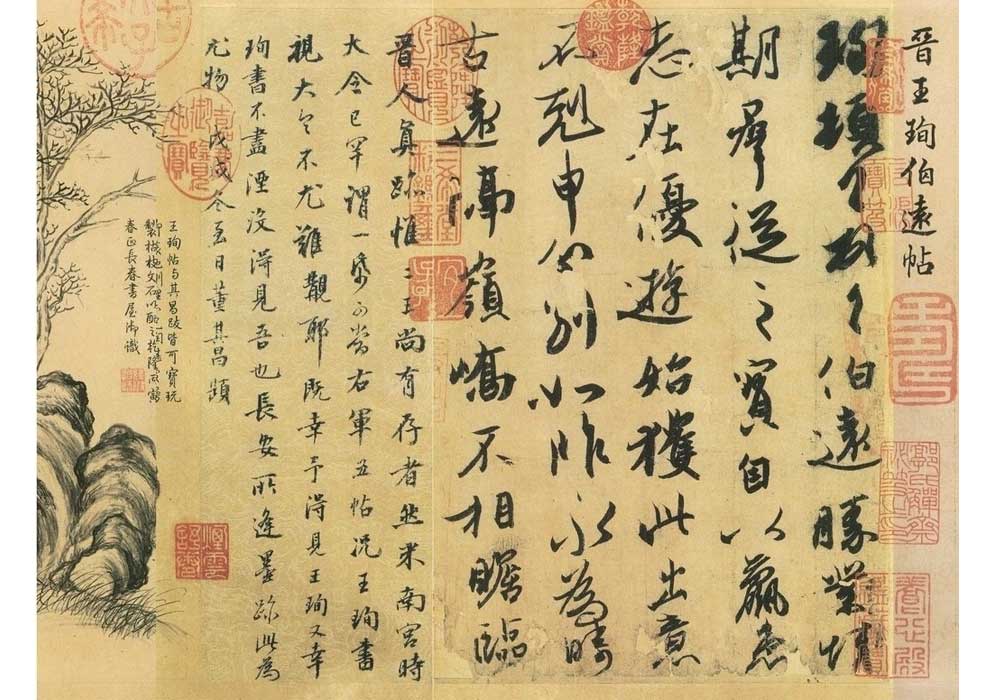 晉王珣伯遠帖
珣頓首頓首伯遠勝業情
期群從之寶自以羸患
志在優遊始獲此出意
不剋申分別如昨永為疇
古遠隔嶺嶠不相瞻臨
晉人真跡惟二王尚有存者然米南宮時
大令已罕謂一紙可當右軍五帖況王珣書
視大令不尤難覯耶既幸予得見王珣又幸
珣書不盡湮沒得見吾也長安所逢墨跡此為
尤物戊戌冬至日董其昌題
王珣帖与其昌跋皆可寶玩
春正長春書屋御識
乾隆鑑賞
嘉慶御覽之寶
養心殿鑑藏寶
郭氏觶齋秘笈之印